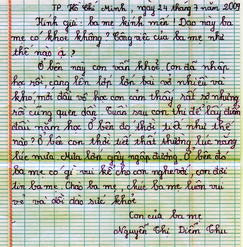 TP. Hồ Chí Minh, ngày 24 tháng 9 năm 2009
Kính gửi: ba mẹ kính mến! Dạo này ba
mẹ có khoẻ không? Công việc của ba mẹ như
thế nào ạ?
Ở bên này con vẫn khoẻ. Con đã nhập
học rồi, càng lên lớp lớn bài vở nhiều và
khó, mới đầu vô học con cảm thấy rất sợ nhưng
rồi cũng quen dần. Tuần sau con thi để lấy điểm
đầu năm học. Ở bên đó thời tiết như thế
nào? Ở bên con thời tiết thất thường lúc nắng
lúc mưa. Mưa lớn gây ngập đường. Ở bên đó
ba mẹ có gì vui kể cho con nghe với, con đợi
tin ba mẹ. Chào ba mẹ, chúc ba mẹ luôn vui
vẻ và dồi dào sức khoẻ.
Con của ba mẹ
Nguyễn Thị Diễm Thu